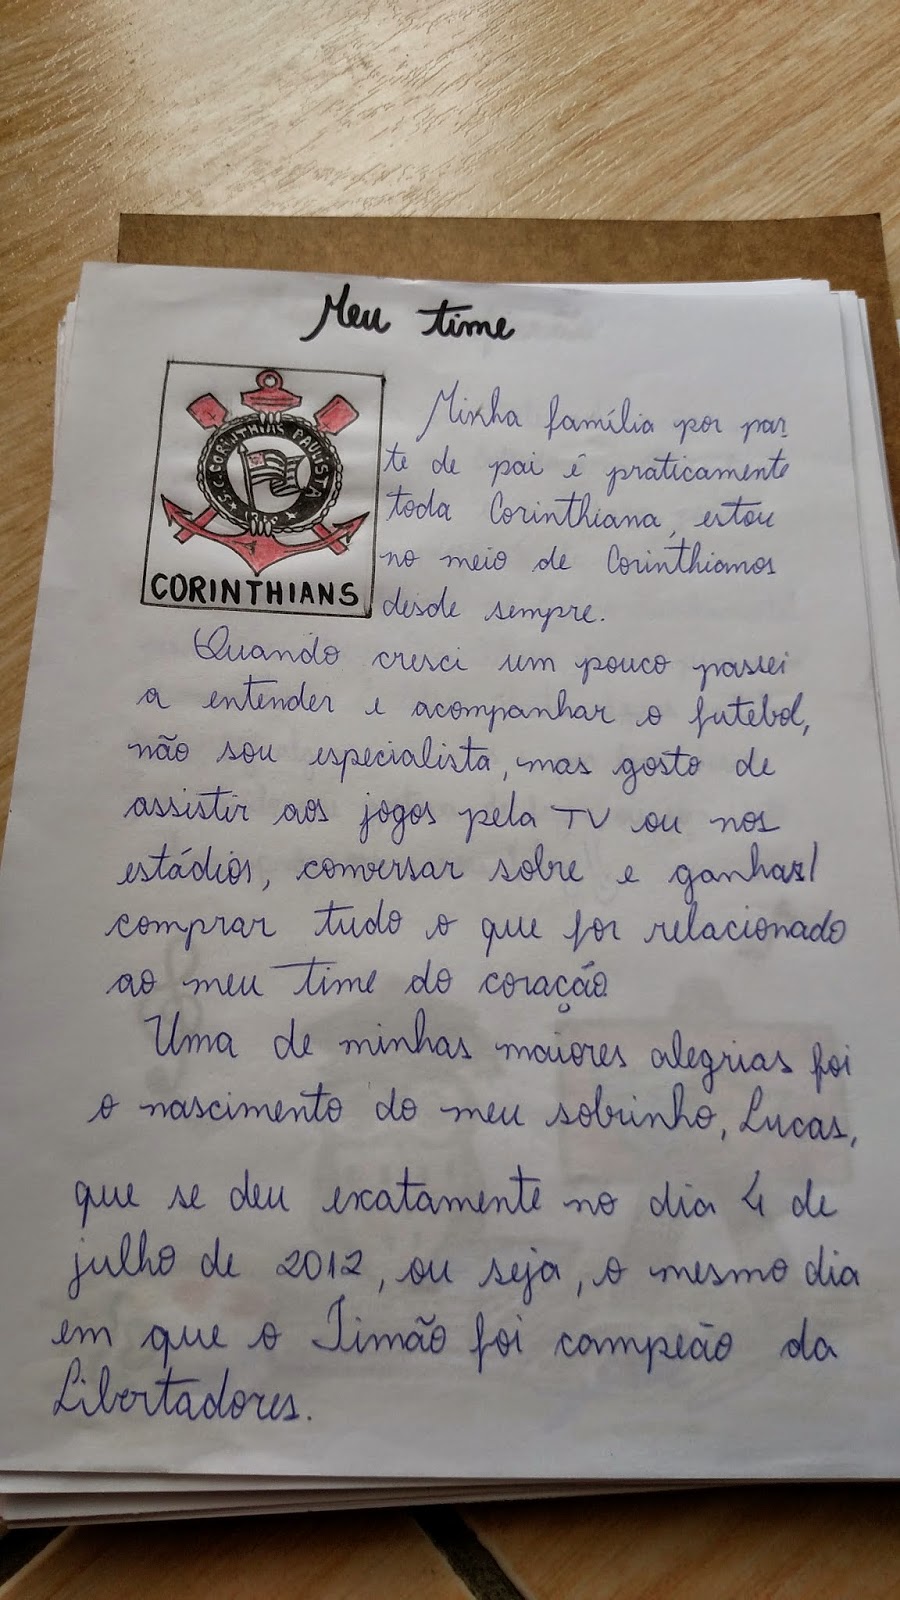 Meu time
S.C. CORINTHIANS PAULISTA
1910
CORINTHIANS
Minha família por par
te de pai é praticamente
toda Corinthiana, estou
no meio de Corinthianos
desde sempre.
Quando cresci um pouco passei
a entender e acompanhar o futebol,
não sou especialista, mas gosto de
assistir aos jogos pela TV ou nos
estádios, conversar sobre e ganhar/
comprar tudo o que for relacionado
ao meu time do coração.
Uma de minhas maiores alegrias foi
o nascimento do meu sobrinho, Lucas,
que se deu exatamente no dia 4 de
julho de 2012, ou seja, o mesmo dia
em que o Timão foi campeão da
Libertadores.